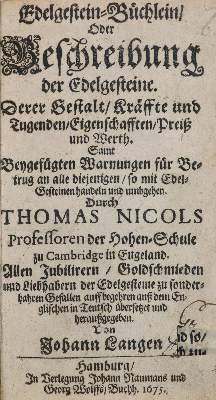 Edelgestein-Büchlein/
Oder
Beschreibung
der Edelgesteine.
Derer Gestalt/Kräffte und
Tugenden/Eigenschafften/Preiß
und Werth.
Samt
Beygefügten Warnungen für Be-
trug an alle diejenigen/so mit Edel-
Gesteinen handeln und umbgehen.
Durch
THOMAS NICOLS
Professoren der Hohen-Schule
zu Cambridge in Engeland.
Allen Jubilirern/Goldschmieden
und Liebhabern der Edelgesteine zu sonder-
bahren Gefallen auff begehren auß dem En-
glischen in Teutsch übersetzet und
heraußgegeben.
Von
Johann Langen
Hamburg/
In Verlegung Johann Naumans und
Georg Wolffs/Buchh. 1675.